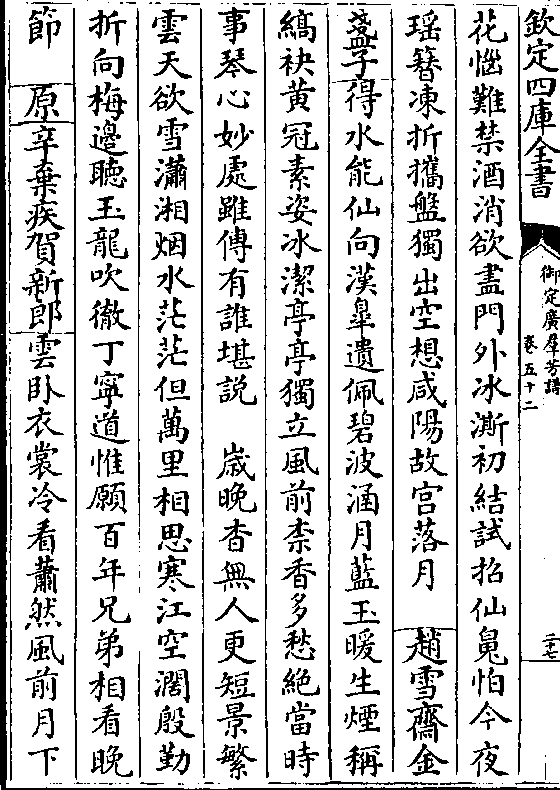 欽定四庫全書
御定廣羣芳譜
卷五十二
三七
花惱難禁酒消欲盡門外冰澌初結試招仙䰟怕今夜
瑶簪凍折攜盤獨出空想咸陽故宮落月 趙雪齋金
盞子得水能仙向漢臯遺佩碧波涵月藍玉暖生煙稱
縞袂黃冠素姿冰潔亭亭獨立風前柰香多愁絶當時
事琴心妙處雖傳有誰堪説 嵗晚杳無人更短景繁
雲天欲雪瀟湘烟水茫茫但萬里相思寒江空濶殷勤
折向梅邉聴玉龍吹徹丁寧道惟願百年兄弟相看晚
節 原辛棄疾賀新郎雲卧衣裳冷看蕭然風前月下